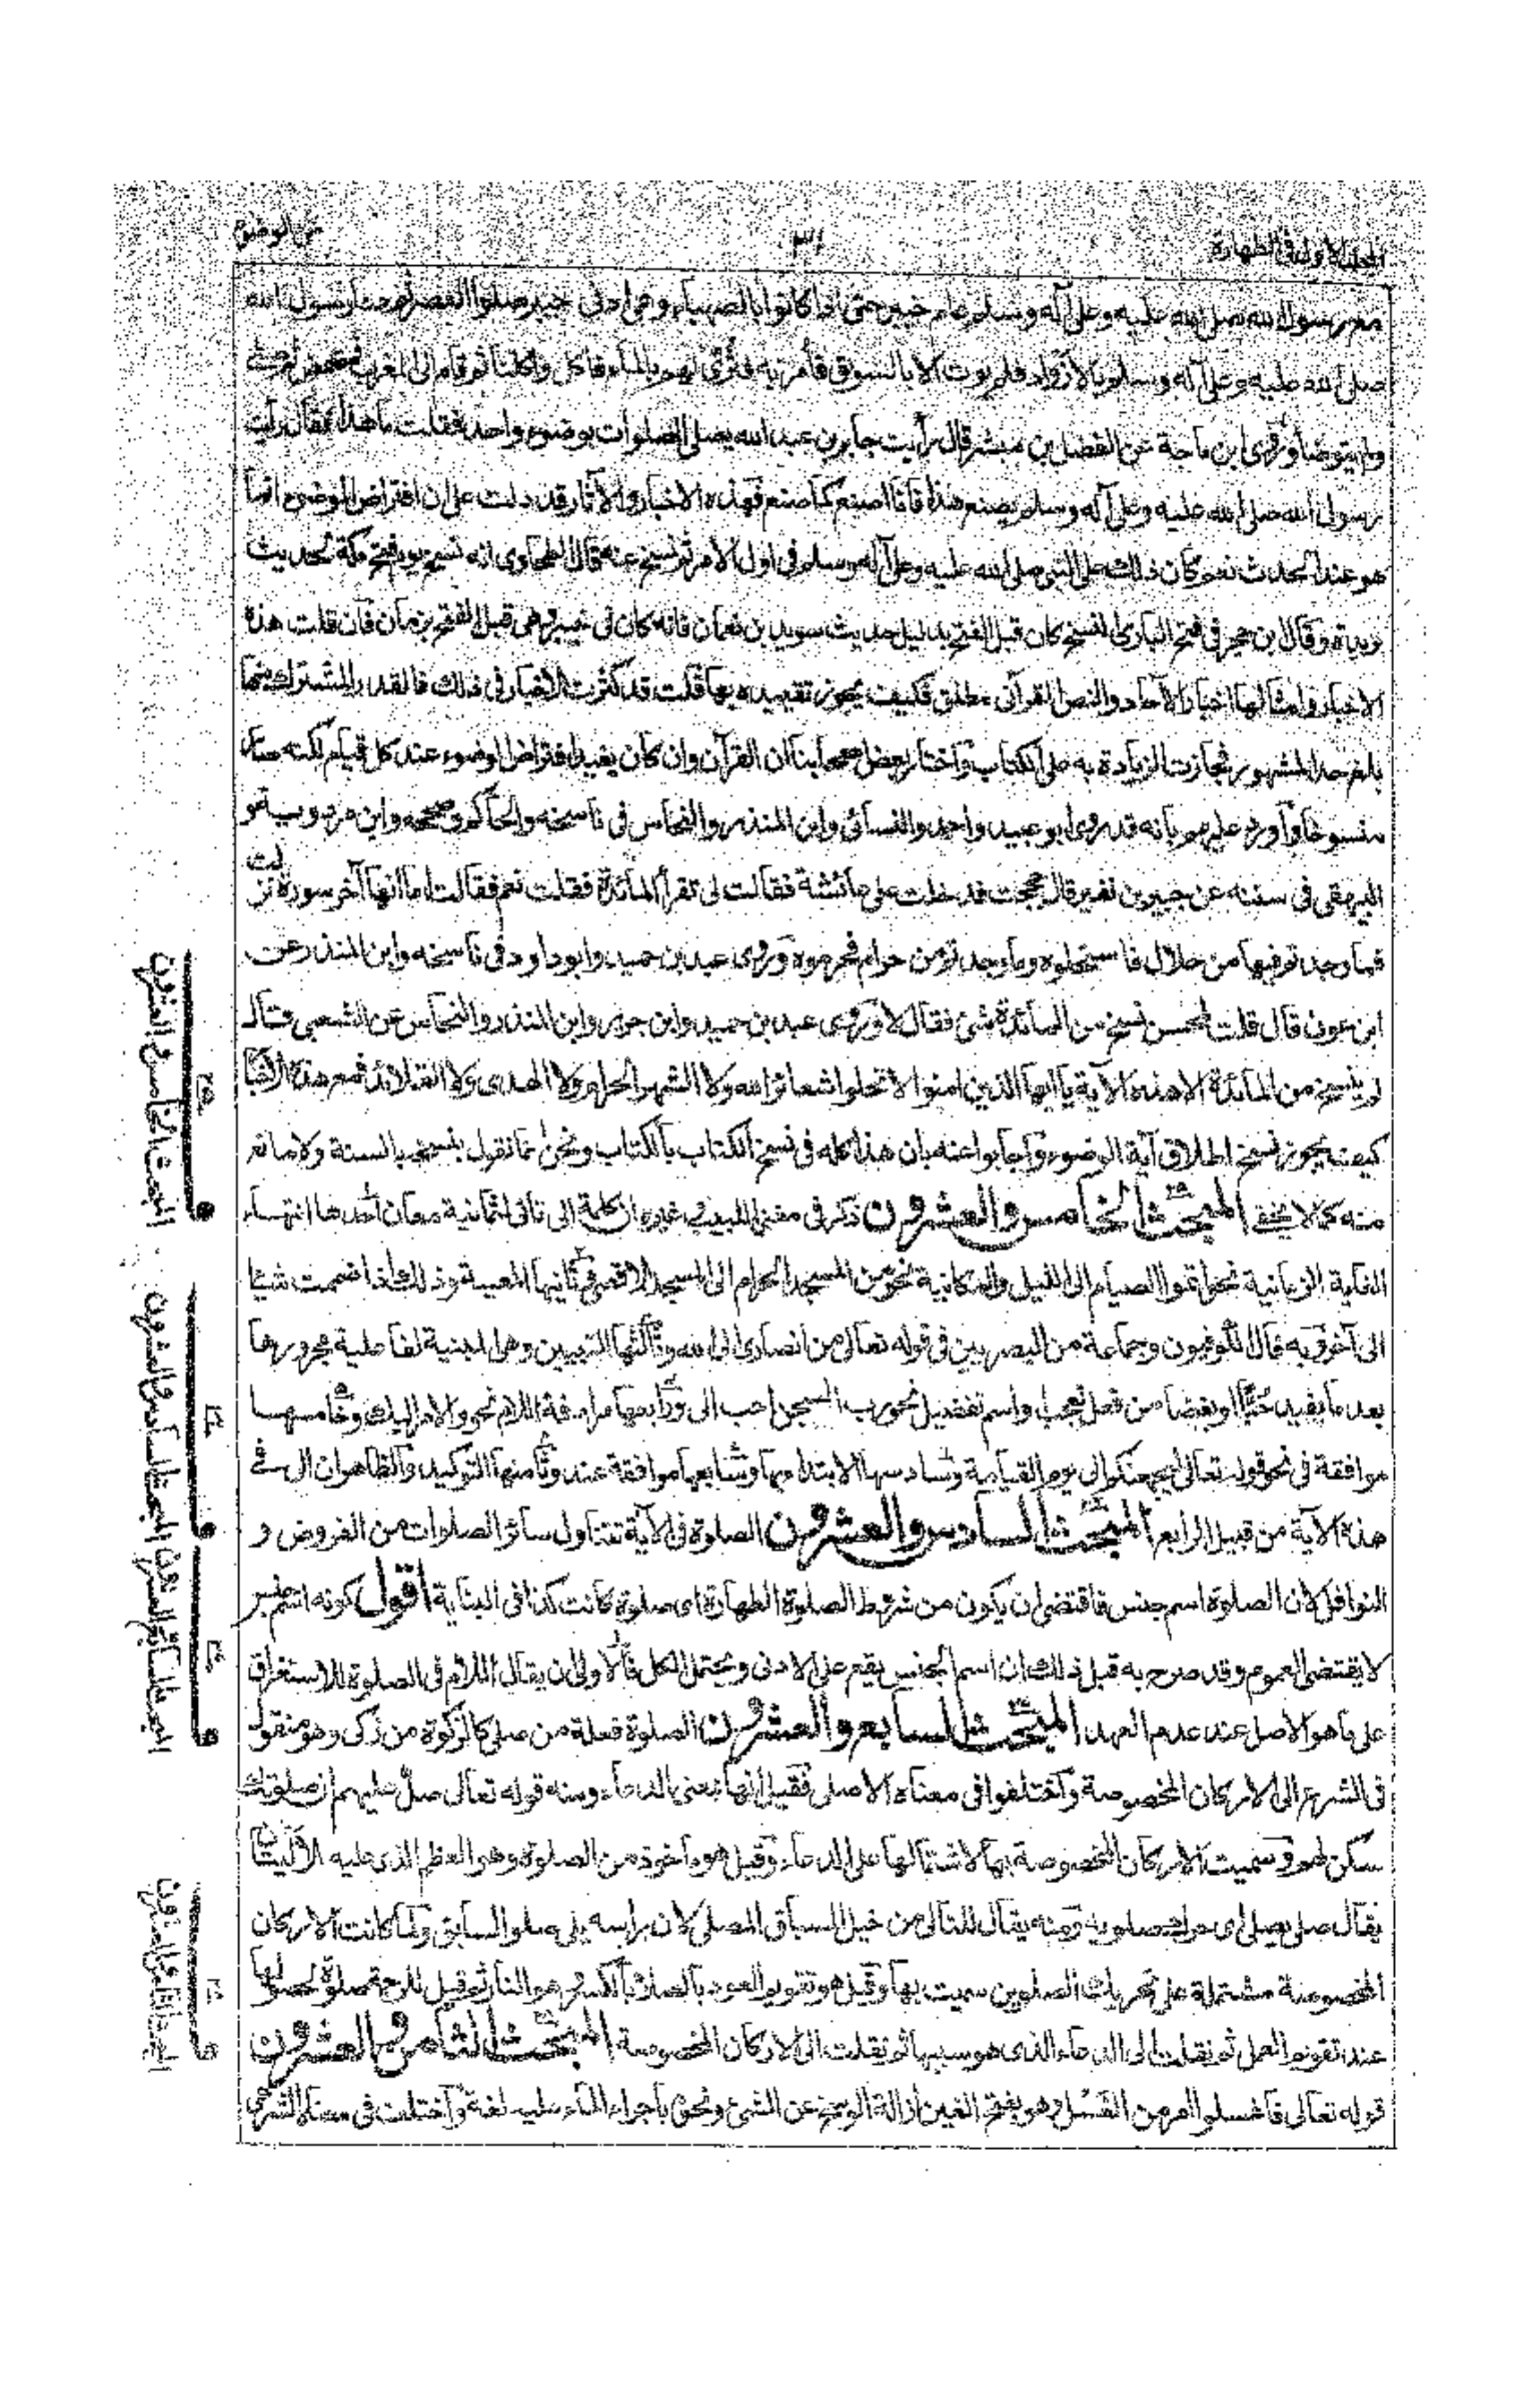 المجلد الاول في الطهارة
٣١
مع رسول الله صلى الله عليه وعلى آله وسلم عام خيبر حتى اذا كانوا بالصهباء وهى ادنى خيبر صلوا العصر رسول الله
صلى الله عليه وعلى آله وسلم بالازواد فلم يوت الا بالسويق فأمر به فثرى لهم بالماء فاكل واكلنا ثم قام الى المغرب فمضمض ثم صلى
ولم يتوضأ وروى ابن ماجة عن الفضل بن مبشر قال رأيت جابر بن عبد الله يصلى الصلوات بوضوء واحد فقلت ما هذا فقال رأيت
رسول الله صلى الله عليه وعلى آله وسلم يصنع هذا فانا اصنع كما صنع فهذه الاخبار والآثار قد دلت على ان افتراض الوضوء انما
هو عند الحدث نعم كان ذلك على النبي صلى الله عليه وعلى آله وسلم فى اول الامر ثم نسخ عنه قال الطحاوى انه نسخ يوم فتح مكة لحديث
بريدة وقال ابن حجر فى فتح البارى النسخ كان قبل الفتح بدليل حديث سويد بن نعمان فانه كان فى خيبر وهى قبل الفتح بزمان فان قلت هذه
الاخبار وامثالها اخبار الآحاد والنص القرآنى مطلق فكيف يجوز تقييده بها قلت قد كثرت الاخبار فى ذلك فالقدر المشترك بينها
بلغ حد المشهور فجازت الزيادة به على الكتاب واختار بعض اصحابنا ان القرآن وان كان يفيد افتراض الوضوء عند كل قيام لكنه صار
منسوخا واورد عليهم بانه قد روى ابو عبيد واحمد والنسائى وابن المنذر والنحاس فى ناسخه والحاكم وصححه وابن مردويه
البيهقى فى سننه عن جبير بن نفير قال حججت فدخلت على عائشة فقالت لى تقرأ المائدة فقلت نعم فقالت اما انها آخر سورة نزلت
فما وجدتم فيها من حلال فاستحلوه وما وجدتم من حرام فحرموه وروى عبد بن حميد وابو داود فى ناسخه وابن المنذر عن
ابن عون قال قلت للحسن نسخ من المائدة شئ فقال لا وروى عبد بن حميد وابن جرير وابن المنذر والنحاس عن الشعبى قال
لم ينسخ من المائدة الا هذه الآية يا ايها الذين امنوا لا تحلوا شعائر الله ولا الشهر الحرام ولا الهدى ولا القلائد فمع هذه
كيف يجوز نسخ اطلاق آية الوضوء واجابوا عنه بان هذا كله فى نسخ الكتاب بالكتاب ونحن انما نقول بنسخه بالسنة ولا مانع
منه كما لا يخفى المبحث الخامس والعشرون ذكر فى مغنى اللبيب وغيره ان كلمة الى تاتى لثمانية معان احدها انتهاء
الغاية الزمانية نحو اتموا الصيام الى الليل والمكانية نحو من المسجد الحرام الى المسجد الاقصى ثانيها المعية وذلك اذا ضممت شيئا
الى آخر وبه قال الكوفيون وجماعة من البصريين فى قوله تعالى من انصارى الى الله وثالثها التبيين وهى المبنية لفاعلية مجرورها
بعد ما يفيد حبا او بغضا من فعل تعجب او اسم تفضيل نحو رب السجن احب الى ورابعها مرادفة اللام نحو والامر اليك وخامسها
موافقة فى نحو قوله تعالى ليجمعنكم الى يوم القيامة وسادسها الابتداء بها وسابعها موافقة عند وثامنها التوكيد والظاهر ان الى فى
هذه الآية من قبيل الرابع المبحث السادس والعشرون الصلوة فى الآية تتناول سائر الصلوات من الفروض و
النوافل لان الصلوة اسم جنس فاقتضى ان يكون من شرط الصلوة الطهارة اى صلوة كانت كذا فى البناية اقول كونه اسم جنس
لا يقتضى العموم وقد صرح به قبل ذلك ان اسم الجنس يقع على الادنى ويحتمل الكل فالاولى ان يقال اللام فى الصلوة للاستغراق
على ما هو الاصل عند عدم العهد المبحث السابع والعشرون الصلوة فعلة من صلى كالزكوة من زكى وهو منقول
فى الشرع الى الاركان المخصوصة واختلفوا فى معناه الاصلى فقيل انها بمعنى الدعاء ومنه قوله تعالى صل عليهم ان صلوتك
سكن لهم وسميت الاركان المخصوصة بها لاشتمالها على الدعاء وقيل هو مأخوذ من الصلوة وهو العظم الذى عليه الاليتان
يقال صلى يصلى اى حرك صلويه ومنه يقال للتالى من خيل السباق المصلى لان رأسه يلى صلو السابق ولما كانت الاركان
المخصوصة مشتملة على تحريك الصلوين سميت بها وقيل هو تقويم العود بالصلا بالكسر وهو النار ثم قيل للرحمة صلوة لحصولها
عند تقويم العمل ثم نقلت الى الدعاء الذى هو سببها ثم نقلت الى الاركان المخصوصة المبحث الثامن والعشرون
قوله تعالى فاغسلوا امر من الغسل وهو بفتح الغين ازالة الوسخ عن الشئ ونحوه باجراء الماء عليه لغة واختلف فى معناه الشرعى
المبحث الخامس والعشرون
٢٥
المبحث السادس والعشرون
٢٦
المبحث السابع والعشرون
٢٧
المبحث الثامن والعشرون
٢٨